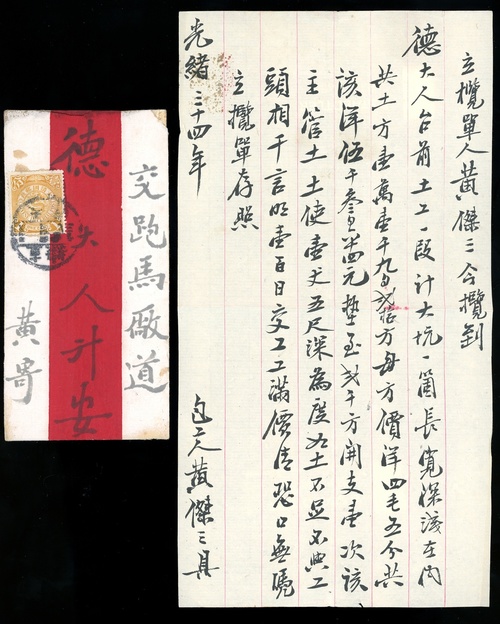 立攬單人黄傑三今攬到
德大人台前土工一段計大坑一箇長寬深淺在内
共土方壹萬壹千九百弍拾方每方價洋四毛五分共
該洋伍千叁百六十四元墊至弍千方開支壹次該
主管土土使壹丈五尺深為度如土不足不與工
頭相干言明壹百日交工工滿價清恐口無憑
立攬單存照
光緒三十四年
包工人黄傑三具
交跑馬廠道
德人升安
黄寄